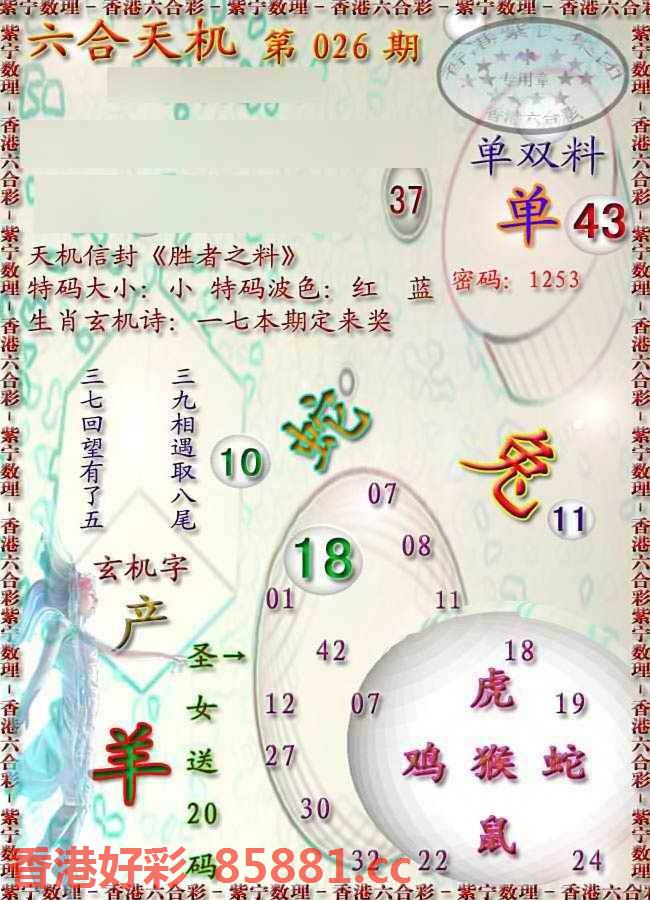 紫宁数理－香港六合彩－紫宁数理－香港六合彩－紫宁数理－香港六合彩
六合天机 第 026 期
专用章
香港六合彩
单双料
37
单 43
天机信封《胜者之料》
特码大小：小 特码波色：红 蓝
密码：1253
生肖玄机诗：一七本期定来奖
三七回望有了五
三九相遇取八尾
蛇
10
兔
11
07
18
08
玄机字
产
01
11
圣女送20码
→
42
18
虎
12
07
19
羊
27
鸡 猴 蛇
30
鼠
32
22
24
香港好彩 85881.cc
紫宁数理－香港六合彩－紫宁数理－香港六合彩－紫宁数理－香港六合彩